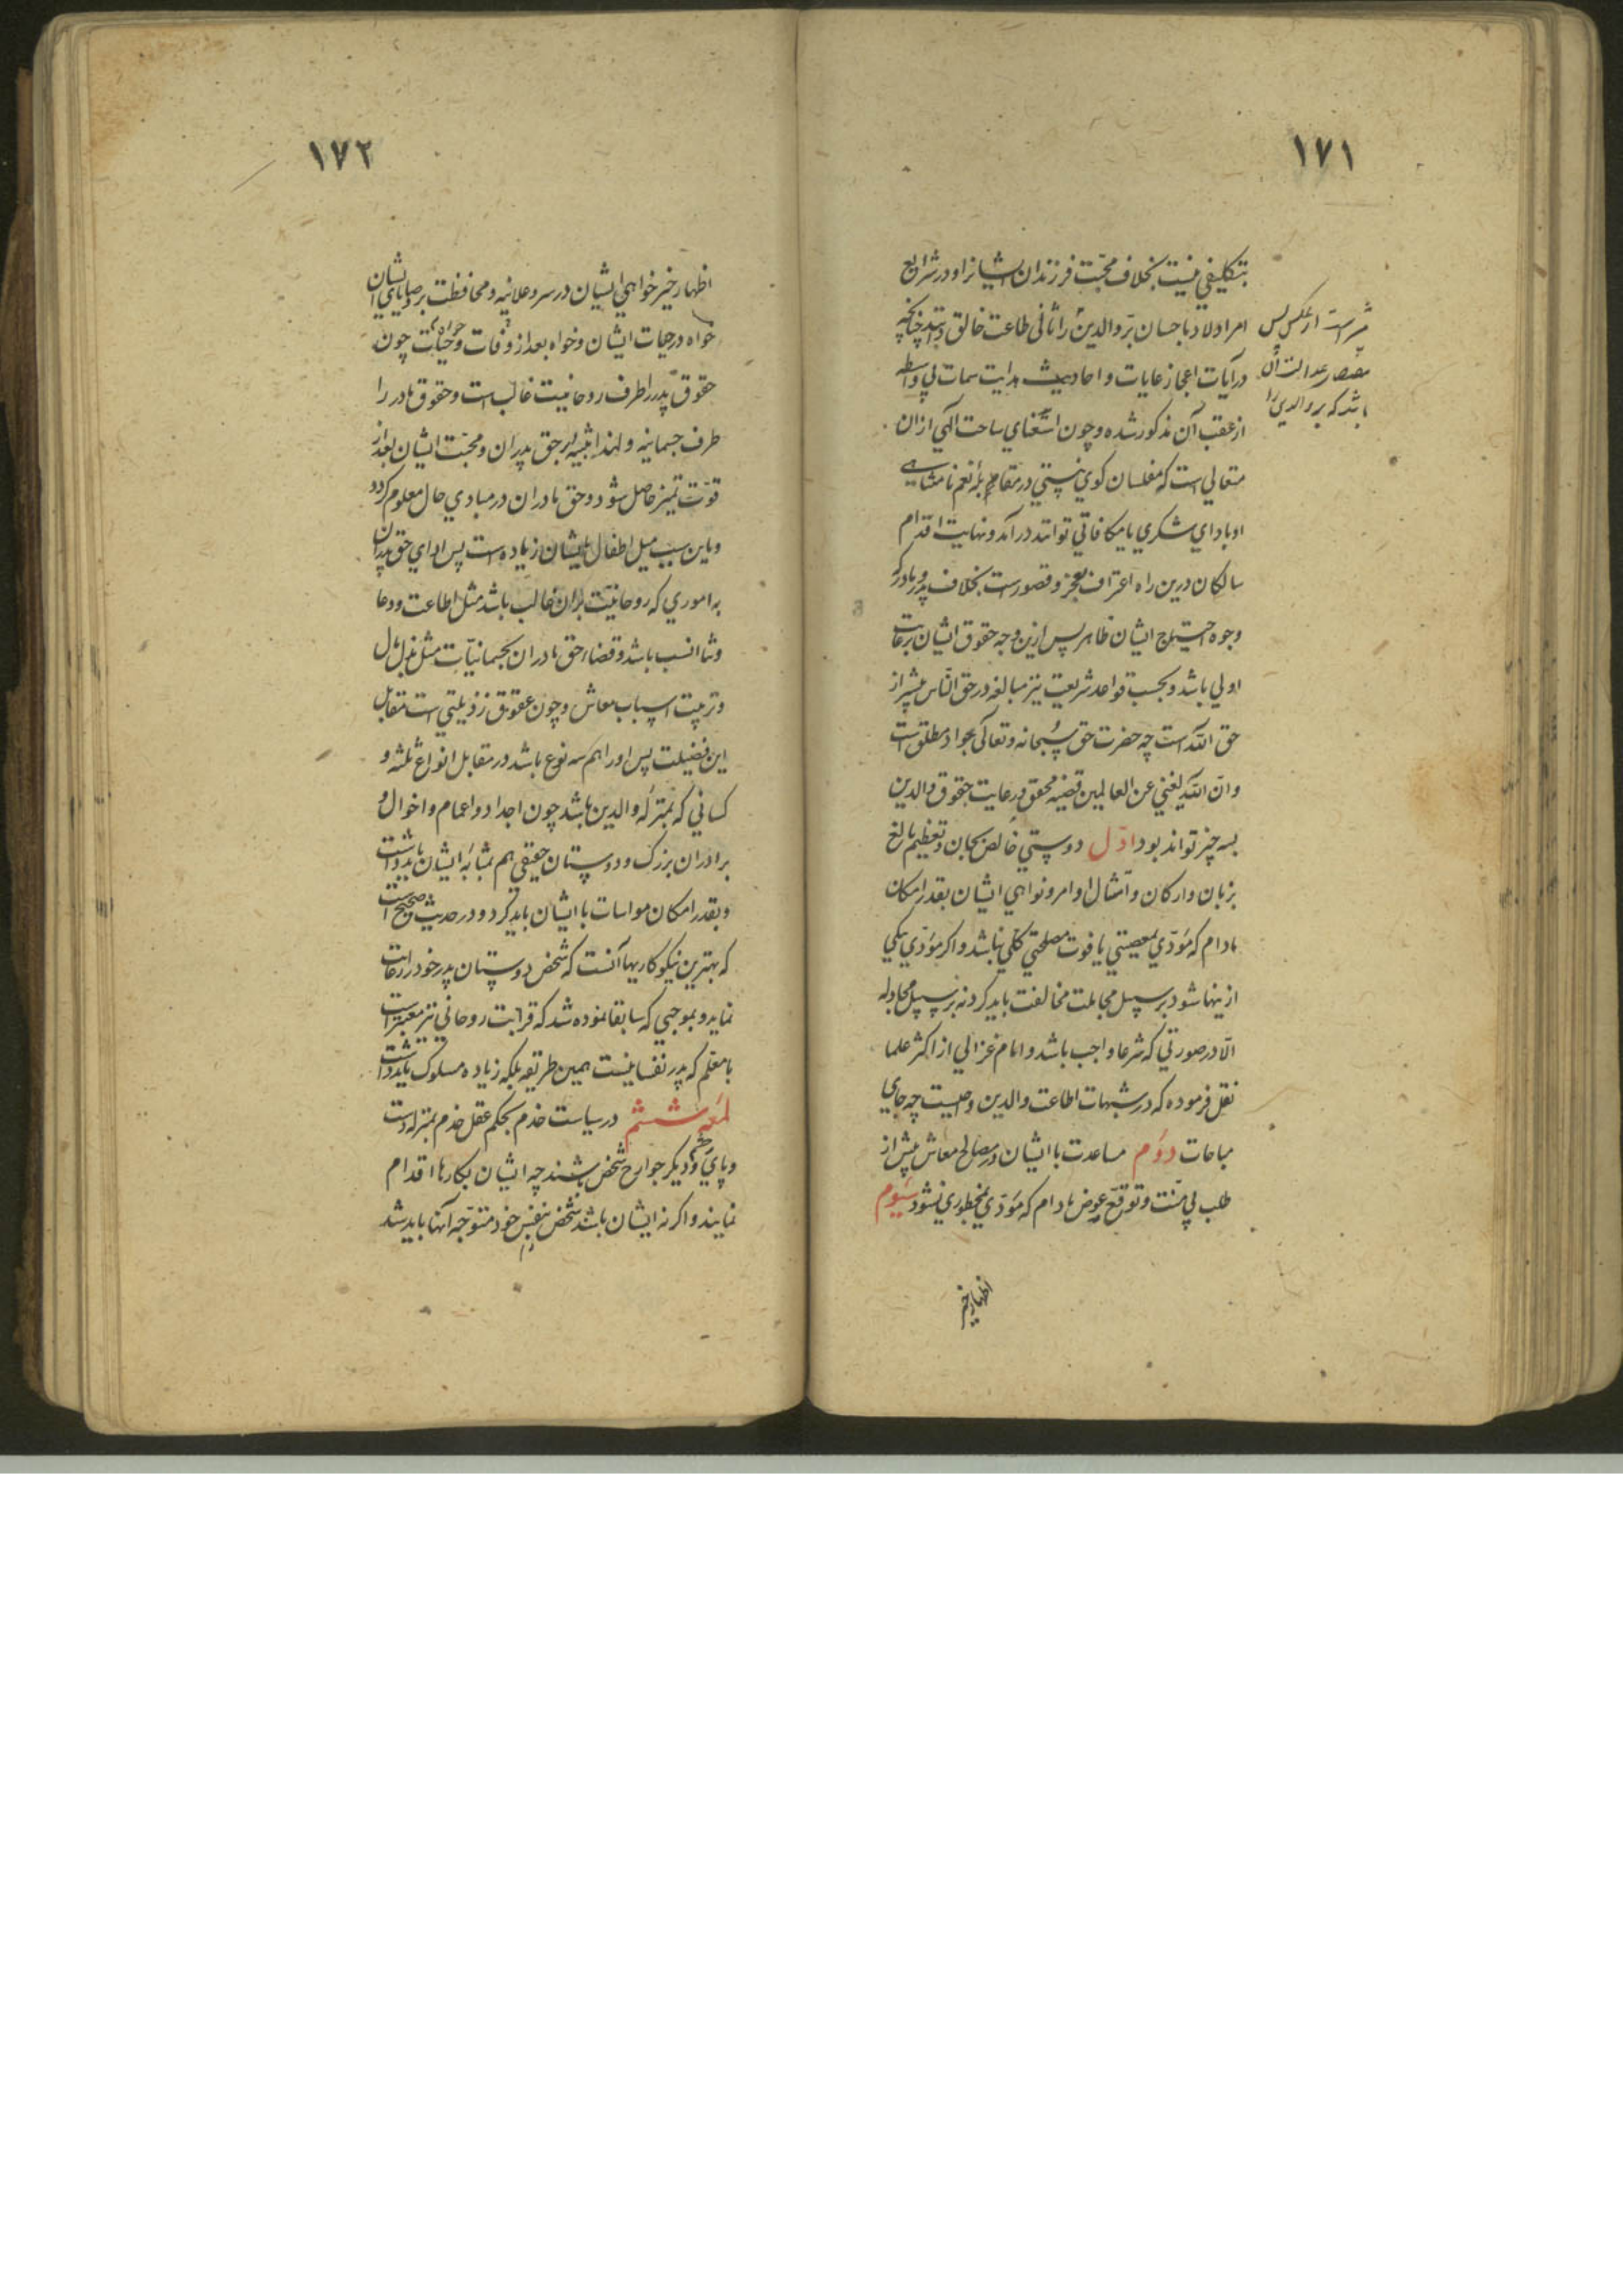 ١٧١
بتكليفي نيست بخلاف محبّت فرزندان ايشانرا و در شرايع
امر اولاد باحسان برّ والدين را ثاني طاعت خالق چنانچه
در آيات اعجاز غايات و احاديث هدايت سمات بي واسطه
از عقب آن مذكور شده و چون استغناي ساحت الهي ازان
متعالي است كه مفلسان كوي نيستي در مقابله نعم نامتناهي
او باداي شكري يا مكافاتي توانند در آمد و نهايت اقدام
سالكان درين راه اعتراف بعجز و قصورست بخلاف پدر و مادر كه
وجوه احتياج ايشان ظاهر پس ازين وجه حقوق ايشان برعايت
اولي باشد و بحسب قواعد شريعت نيز مبالغه در حق النّاس بيشتر از
حق اللّه است چه حضرت حق سبحانه و تعالى جواد مطلق است
و انّ اللّه لغني عن العالمين قضيه محقق و رعايت حقوق والدين
بسه چيز تواند بود اوّل دوستي خالص بجان و تعظيم بالغ
بزبان و اركان و امتثال اوامر و نواهي ايشان بقدر امكان
مادام كه مؤدّي بمعصيتي يا فوت مصلحتي كلّي نباشد و اكر مؤدّي بيكي
ازينها شود بر سبيل مجاملت مخالفت بايد كرد نه بر سبيل مجادله
الّا در صورتي كه شرعا واجب باشد و امام غزالي از اكثر علما
نقل فرموده كه در شبهات اطاعت والدين واجبست چه جاي
مباحات دوّم مساعدت با ايشان در مصالح معاش پيش از
طلب بي منّت و توقّع عوض مادام كه مؤدّي بمحظوري نشود سيّوم
اظهار خير
از عكس پس
عدالت آن
باشد كه بر والدين را
١٧٢
اظهار خير خواهي ايشان در سر و علانيه و محافظت بر وصاياي ايشان
خواه در حيات ايشان و خواه بعد از وفات و حيات چون
حقوق پدر را طرف روحانيت غالبست و حقوق مادر را
طرف جسمانيه و لهذا تنبيه بر حق پدران و محبّت ايشان بعد از
قوّت تميز حاصل شود و حق مادران در مبادي حال معلوم كردد
و باين سبب ميل اطفال بايشان زياده است پس اداي حق پدران
به اموري كه روحانيّت بران غالب باشد مثل اطاعت و دعا
و ثنا انسب باشد و قضاء حق مادران بجسمانيّات مثل بذل مال
و ترتيب اسباب معاش و چون عقوق رذيلتي است مقابل
اين فضيلت پس او را هم سه نوع باشد در مقابل انواع ثلثه و
كساني كه بمنزله والدين باشند چون اجداد و اعمام و اخوال و
برادران بزرك و دوستان حقيقي هم بمثابه ايشان بايد داشت
و بقدر امكان مواسات با ايشان بايد كرد و در حديث صحيح است
كه بهترين نيكوكاريها آنست كه شخص دوستان پدر خود را رعايت
نمايد و بموجبي كه سابقا نموده شد كه قرابت روحاني نيز معتبر است
با معلّم كه پدر نفسانيست همين طريقه بلكه زياده مسلوك بايد داشت
لمعه ششم در سياست خدم بحكم عقل خدم بمنزله دست
و پاي و چشم و ديكر جوارح شخص باشند چه ايشان بكارها اقدام
نمايند و اكر نه ايشان باشند شخص بنفس خود متوجّه آنها بايد شد